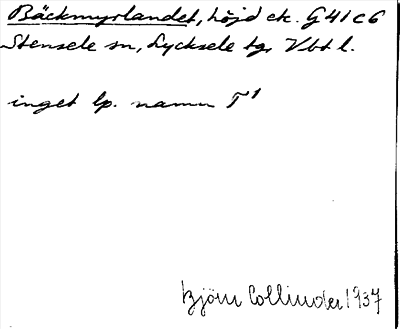 Bäckmyrlandet, höjd ek. G41c6
Stensele sn, Lycksele tg, Vbtl.
inget lp. namn T¹
Björn Collinder 1937